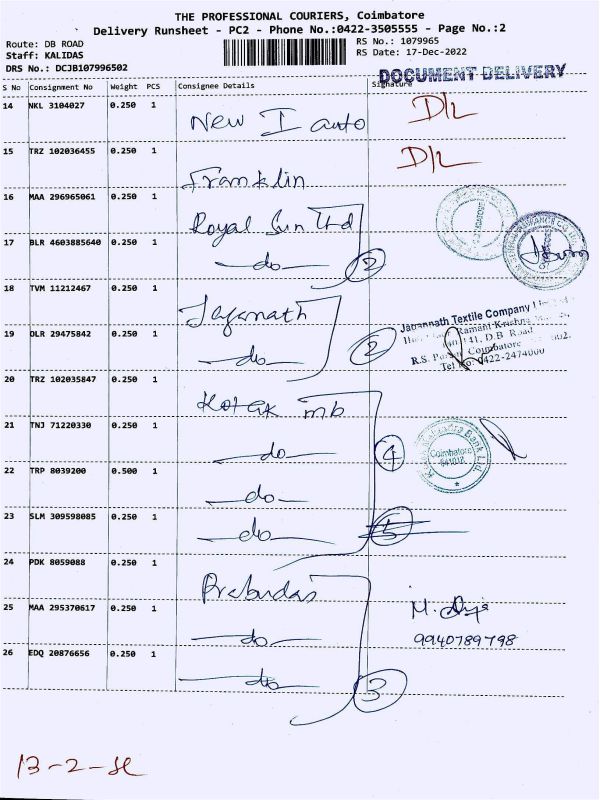 THE PROFESSIONAL COURIERS, Coimbatore
Delivery Runsheet - PC2 - Phone No.:0422-3505555 - Page No.:2
Route: DB ROAD
RS No.: 1079965
Staff: KALIDAS
RS Date: 17-Dec-2022
DRS No.: DCJB107996502
DOCUMENT DELIVERY
S No Consignment No Weight PCS Consignee Details Signature
14 NKL 3104027 0.250 1 New I auto D/L
15 TRZ 102036455 0.250 1 Franklin D/L
16 MAA 296965061 0.250 1 Royal Sun Ltd
17 BLR 4603885640 0.250 1 do 2
18 TVM 11212467 0.250 1 Jaganath
Jagannath Textile Company
Ramani Krishna
141, D.B Road
R.S. Coimbatore 002.
Tel No: 0422-2474000
19 DLR 29475842 0.250 1 do 2
20 TRZ 102035847 0.250 1 Kotak mb
21 TNJ 71220330 0.250 1 do 4
Kotak Mahindra Bank Ltd.
Coimbatore
22 TRP 8039200 0.500 1 do
23 SLM 309598085 0.250 1 do 5
24 PDK 8059088 0.250 1 Prabudas
25 MAA 295370617 0.250 1 do
M.
9940789798
26 EDQ 20876656 0.250 1 do 3
13-2-